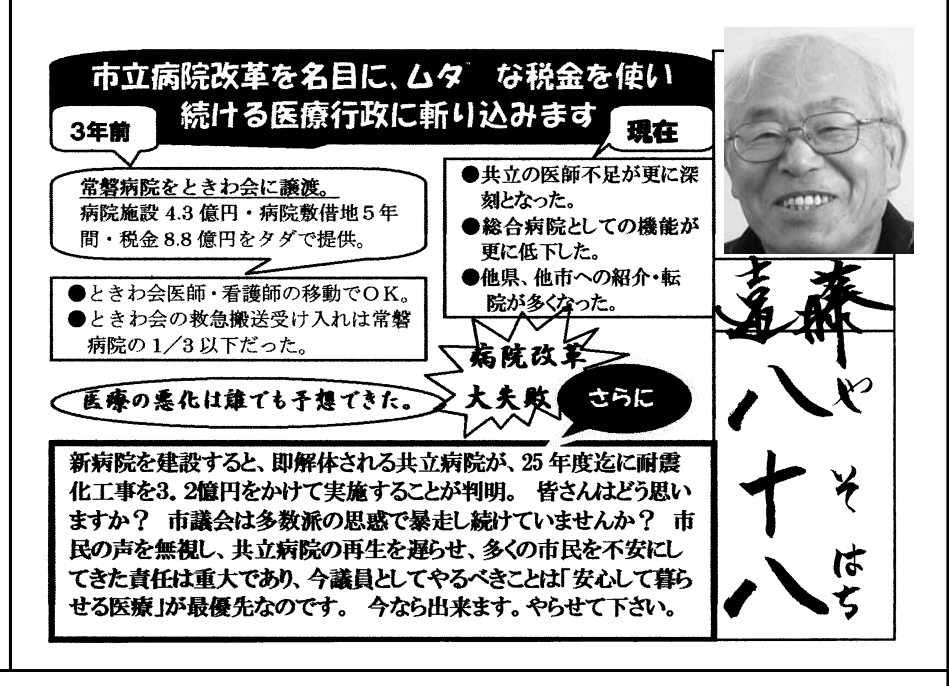 市立病院改革を名目に、ムダ゛な税金を使い
続ける医療行政に斬り込みます
3年前
常磐病院をときわ会に譲渡。
病院施設 4.3 億円・病院敷借地５年
間・税金 8.8 億円をタダで提供。
●ときわ会医師・看護師の移動でＯＫ。
●ときわ会の救急搬送受け入れは常磐
病院の１／３以下だった。
現在
●共立の医師不足が更に深
刻となった。
●総合病院としての機能が
更に低下した。
●他県、他市への紹介・転
院が多くなった。
病院改革
大失敗
医療の悪化は誰でも予想できた。
さらに
新病院を建設すると、即解体される共立病院が、25 年度迄に耐震
化工事を3．2億円をかけて実施することが判明。 皆さんはどう思い
ますか？ 市議会は多数派の思惑で暴走し続けていませんか？ 市
民の声を無視し、共立病院の再生を遅らせ、多くの市民を不安にし
てきた責任は重大であり、今議員としてやるべきことは「安心して暮ら
せる医療」が最優先なのです。 今なら出来ます。やらせて下さい。
藤
八十八
やそはち